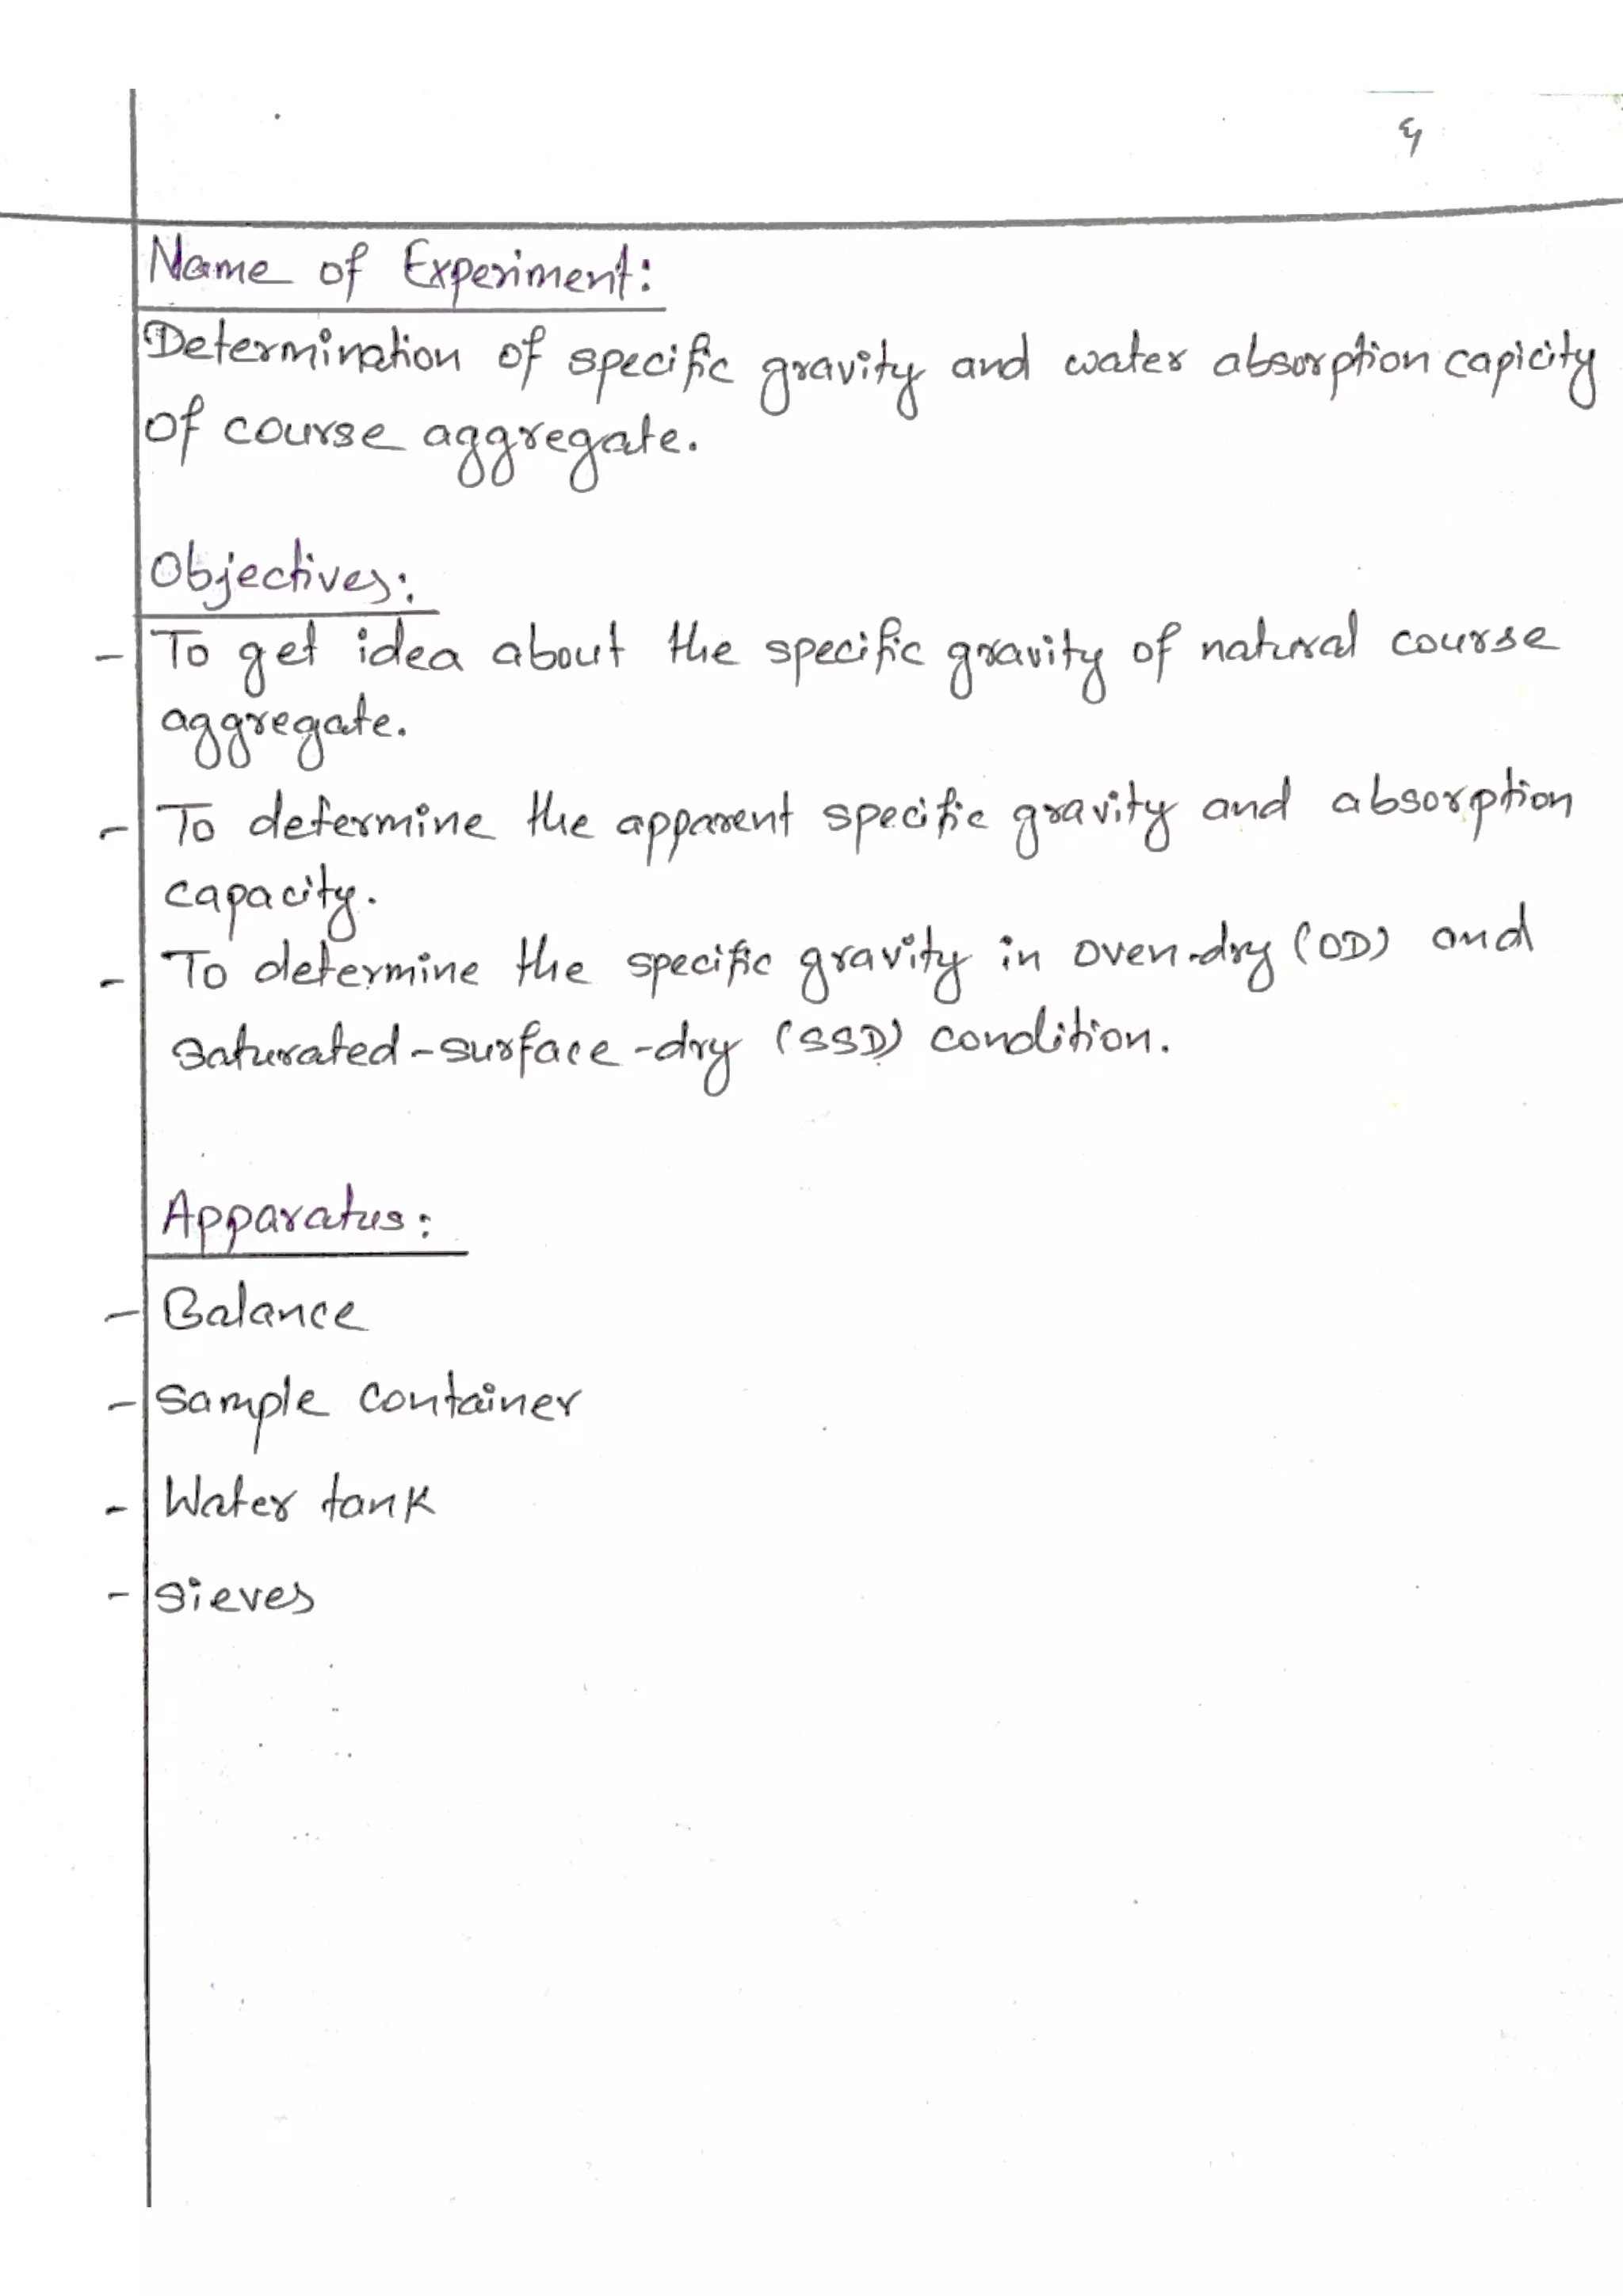 Name of Experiment:
Determination of specific gravity and water absorption capicity
of course aggregate.
Objectives:
- To get idea about the specific gravity of natural course
aggregate.
- To determine the apparent specific gravity and absorption
capacity.
- To determine the specific gravity in oven-dry (OD) and
saturated-surface-dry (SSD) condition.
Apparatus:
- Balance
- Sample Container
- Water tank
- Sieves